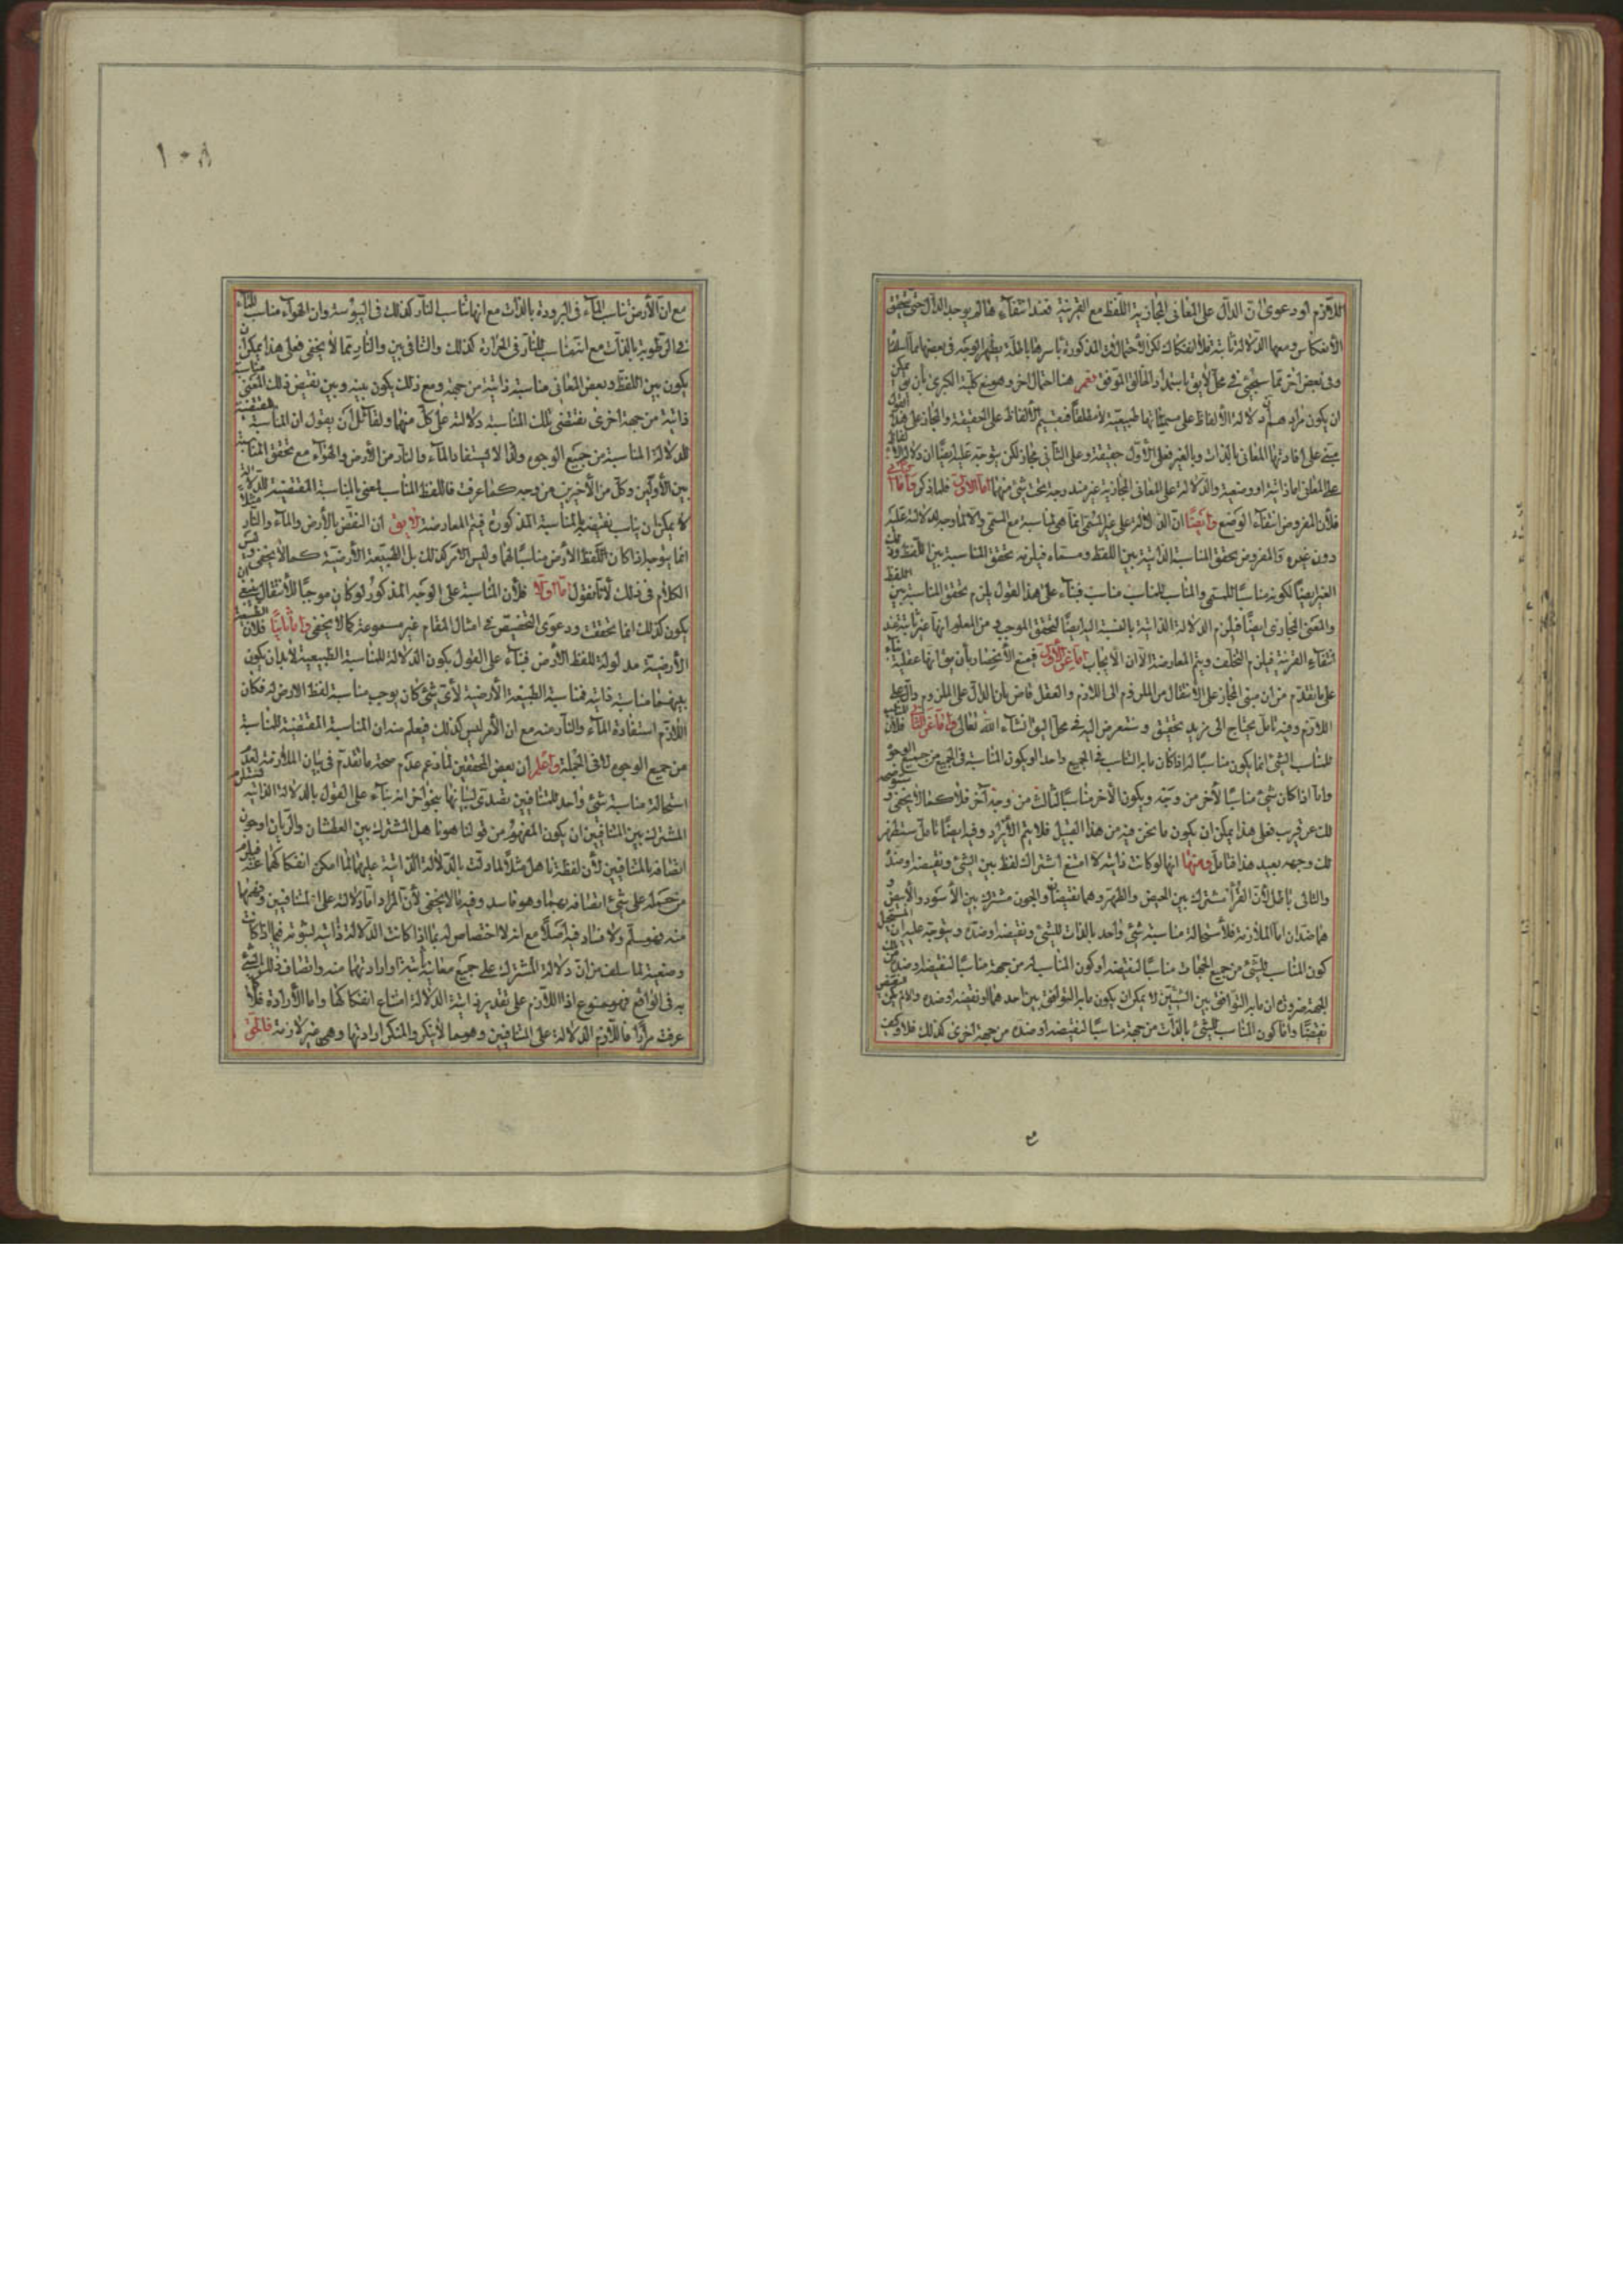 اللازم او دعوى ان الدال على المعانى المجازية اللفظ مع القرينة فعند انتفاء هالم يوجد الدال حتى يتحقق
الانفكاك ومعها الدلالة ثابتة فلا انفكاك لكن الاحتمالات المذكورة باسرها باطلة يظهر الوجه فى بعضها مما اسلفنا
وفى بعض اخر مما سيجئ فى محل لايق باستمداد الخالق الموفق نعم هنا احتمال اخر وهو منع كلية الكبرى بان يق يمكن
ان يكون مرادهم ان دلالة الالفاظ على مسمياتها طبيعية لا مطلقا فتقسيم الالفاظ على الحقيقة والمجاز على هذا القول
مبنى على افادتها المعانى بالذات وبالغير فعلى الاول حقيقة وعلى الثانى مجاز لكن يتوجه عليه ايضا ان دلالة الالفاظ
على المعانى اما ذاتية او وضعية والدلالة على المعانى المجازية غير مندرجة تحت شئ منهما اما الاولى فلما ذكر واما الثانى
فلان المفروض انتفاء الوضع وايضا ان الدلالة على غير المسمى انما هى لمناسبة مع المسمى والا لما وجد الدلالة عليه
دون غيره والمفروض تحقق المناسبة الذاتية بين اللفظ ومسماه فيلزم تحقق المناسبة بين اللفظ وذلك
الغير ايضا لكونه مناسبا للمسمى والمناسب للمناسب مناسب فبناء على هذا القول يلزم تحقق المناسبة بين اللفظ
والمعنى المجازى ايضا فيلزم الدلالة الذاتية بالنسبة اليه ايضا لتحقق الموجب ومن المعلوم انها غير ثابتة عند
انتفاء القرينة فيلزم التخلف ويتم المعارضة الا ان الايجاب اما عن الاول فمنع الانحصار بان يق انها عقلية بناء
على ما يتقدم من ان مبنى المجاز على الانتقال من الملزوم الى اللازم والعقل قاض بان الدال على الملزوم دال على
اللازم وفيه تامل يحتاج الى مزيد تحقيق وستعرض اليه فى محل اليق انشاء الله تعالى واما عن الثانى فلان المناسب
للمناسب الشئ انما يكون مناسبا له اذا كان ما به التناسب فى الجميع واحدا او يكون المناسبة فى الجميع من جميع الوجوه
واما اذا كان شئ مناسبا لاخر من وجه ويكون الاخر مناسبا لثالث من وجه آخر فلا كما لا يخفى وستوضحه
لك عن قريب فعلى هذا يمكن ان يكون ما نحن فيه من هذا القبيل فلا يتم الايراد وفيه ايضا تامل ستظهر
لك وجهه بعيد هذا فتامل ومنها انها لو كانت ذاتية لامتنع اشتراك لفظ بين الشئ ونقيضه او ضده
والتالى باطل لان القرأ مشترك بين الحيض والطهر وهما نقيضان والجون مشترك بين الاسود والابيض و
هما ضدان اما الملازمة فلاستحالة مناسبة شئ واحد بالذات للشئ ونقيضه او ضده ويتوجه عليه ان المستحيل
كون المناسب للشئ من جميع الجهات مناسبا لنقيضه او كون المناسب له من جهة مناسبا لنقيضه او ضده من تلك
الجهة ضرورة ان ما به التوافق بين الشيئين لا يمكن ان يكون ما به التوافق بين احدهما ونقيضه او ضده والا لم يكن النقيض
نقيضا واما كون المناسب للشئ بالذات من جهة مناسبا لنقيضه او ضده من جهة اخرى كذلك فلا وكيف
مع
١٠٨
مع ان الارض تناسب الماء فى البرودة بالذات مع انها تناسب النار كذلك فى اليبوسة وان الهواء مناسب للماء
فى الرطوبة بالذات مع انه مناسب للنار فى الحرارة كذلك والتنافى بين والنار مما لا يخفى فعلى هذا يمكن ان
يكون بين اللفظ وبعض المعانى مناسبة ذاتية من جهة ومع ذلك يكون بينه وبين نقيض ذلك المعنى مناسبة
ذاتية من جهة اخرى يقتضى تلك المناسبة دلالته على كل منهما ولقائل ان يقول ان المناسبة المقتضية
للدلالة المناسبة من جميع الوجوه ولذا لا يستفاد الماء والنار من الارض والهواء مع تحقق المناسبة
بين الاولين وكل من الاخيرين من وجه كما عرفت فاللفظ المناسب لمعنى بالمناسبة المقتضية للدلالة
لا يمكن ان يناسب نقيضه بالمناسبة المذكورة فيتم المعارضة لا يق ان النقض بالارض والماء والنار مثلا
انما يتوجه اذا كان اللفظ الارض مناسبا لهما وليس الامر كذلك بل الطبيعة الارضية كما لا يخفى وليس
الكلام فى ذلك لانا نقول اما اولا فلان المناسبة على الوجه المذكور لو كان موجبا للانتقال ينبغى ان
يكون كذلك انما تحققت ودعوى التخصيص فى امثال المقام غير مسموعة كما لا يخفى واما ثانيا فلان الطبيعة
الارضية مدلولة للفظ الارض فبناء على القول بكون الدلالة للمناسبة الطبيعية لا بد ان يكون
بينهما مناسبة ذاتية فمناسبة الطبيعة الارضية لاى شئ كان يوجب مناسبة لفظ الارض له فكان
اللازم استفادة الماء والنار منه مع ان الامر ليس كذلك فيعلم منه ان المناسبة المقتضية للمناسبة
من جميع الوجوه لا فى الجملة واعلم ان بعض المحققين لما زعم عدم صحة ما تقدم فى بيان الملازمة لعدم
استحالة مناسبة شئ واحد للمتنافيين تصدى لبيانها بنحو اخر انه بناء على القول بالدلالة الذاتية
المشترك بين المتنافيين ان يكون المفهوم من قولنا هو ناهل المشترك بين العطشان والريان اوجون
اتصافه بالمتنافيين لان لفظة ناهل مثلا لما دلت بالدلالة الذاتية عليهما لما امكن انفكاكهما عنه فيلزم
من حمله على شئ اتصافه بهما وهو فاسد وفيه ما لا يخفى لان المراد اما دلالته على المتنافيين وفهمهما
منه فهو مسلم ولا فساد فيه اصلا مع انه لا اختصاص له بما اذا كانت الدلالة ذاتية لثبوته فيما اذا كانت
وضعية لما سلف من ان دلالة المشترك على جميع معانيه ثابتة او ارادتهما منه واتصاف ذلك الشئ
به فى الواقع فهو ممنوع اذ اللازم على تقدير ذاتية الدلالة امتناع انفكاكها واما الارادة فلا
عرفت مرارا فاللازم الدلالة على المتنافيين وهو مما لا ينكر والمنكر ارادتها وهى غير لازمة فالحق